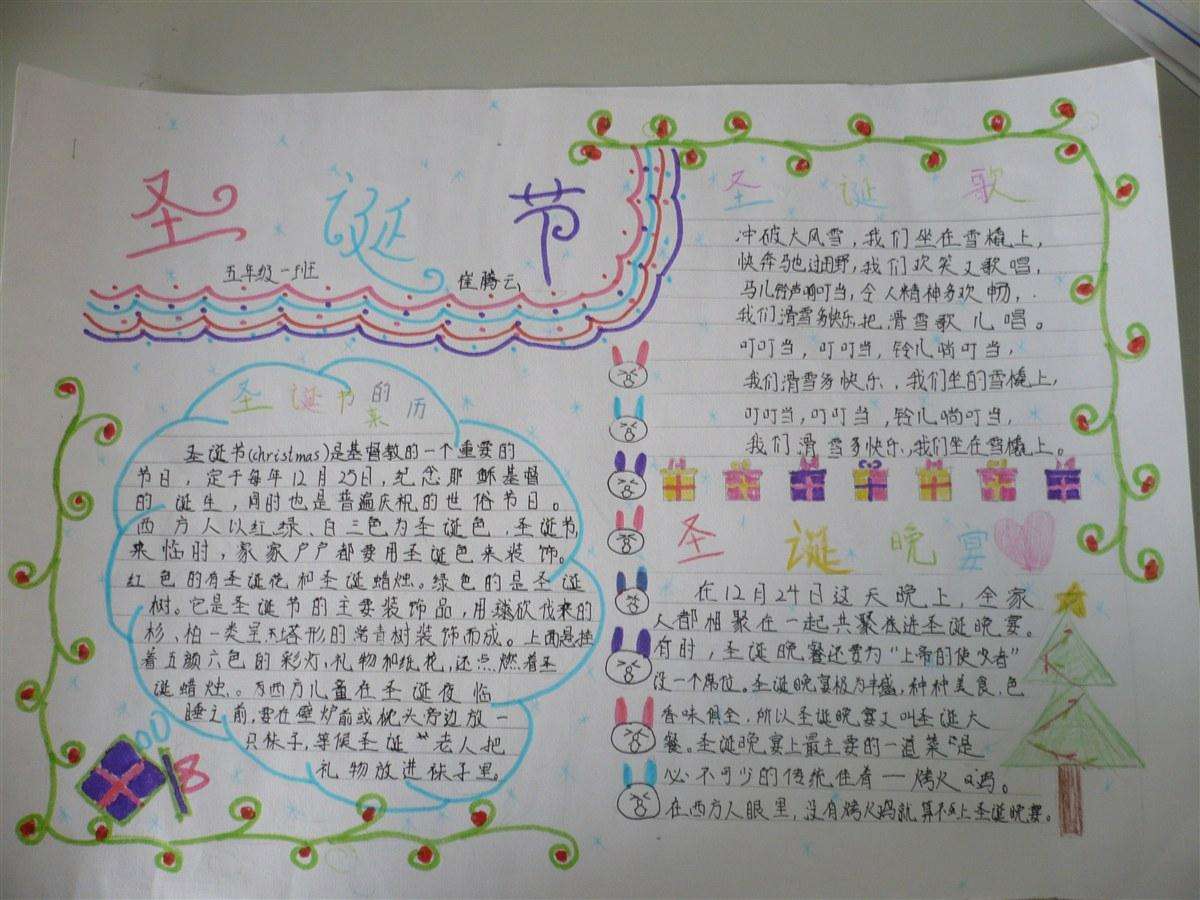 圣诞节
五年级一班 崔腾云
圣诞节的来历
圣诞节(christmas)是基督教的一个重要的
节日，定于每年12月25日，纪念耶稣基督
的诞生，同时也是普遍庆祝的世俗节日。
西方人以红、绿、白三色为圣诞色，圣诞节
来临时，家家户户都要用圣诞色来装饰。
红色的有圣诞花和圣诞蜡烛。绿色的是圣诞
树。它是圣诞节的主要装饰品，用砍伐来的
杉、柏一类呈塔形的常青树装饰而成。上面悬挂
着五颜六色的彩灯，礼物和纸花，还点燃着圣
诞蜡烛。西方儿童在圣诞夜临
睡之前，要在壁炉前或枕头旁边放一
只袜子，等候圣诞老人把
礼物放进袜子里。
圣诞歌
冲破大风雪，我们坐在雪橇上，
快奔驰过田野，我们欢笑又歌唱，
马儿铃声响叮当，令人精神多欢畅，
我们滑雪多快乐把滑雪歌儿唱。
叮叮当，叮叮当，铃儿响叮当，
我们滑雪多快乐，我们坐的雪橇上，
叮叮当，叮叮当，铃儿响叮当，
我们滑雪多快乐，我们坐在雪橇上。
圣诞晚宴
在12月24日这天晚上，全家
人都相聚在一起共聚在进圣诞晚宴。
有时，圣诞晚餐还要为“上帝的使者”
设一个席位。圣诞晚宴极为丰盛，种种美食，色
香味俱全，所以圣诞晚宴又叫圣诞大
餐。圣诞晚宴上最主要的一道菜是
必不可少的传统佳肴——烤火鸡。
在西方人眼里，没有烤火鸡就算不上圣诞晚宴。